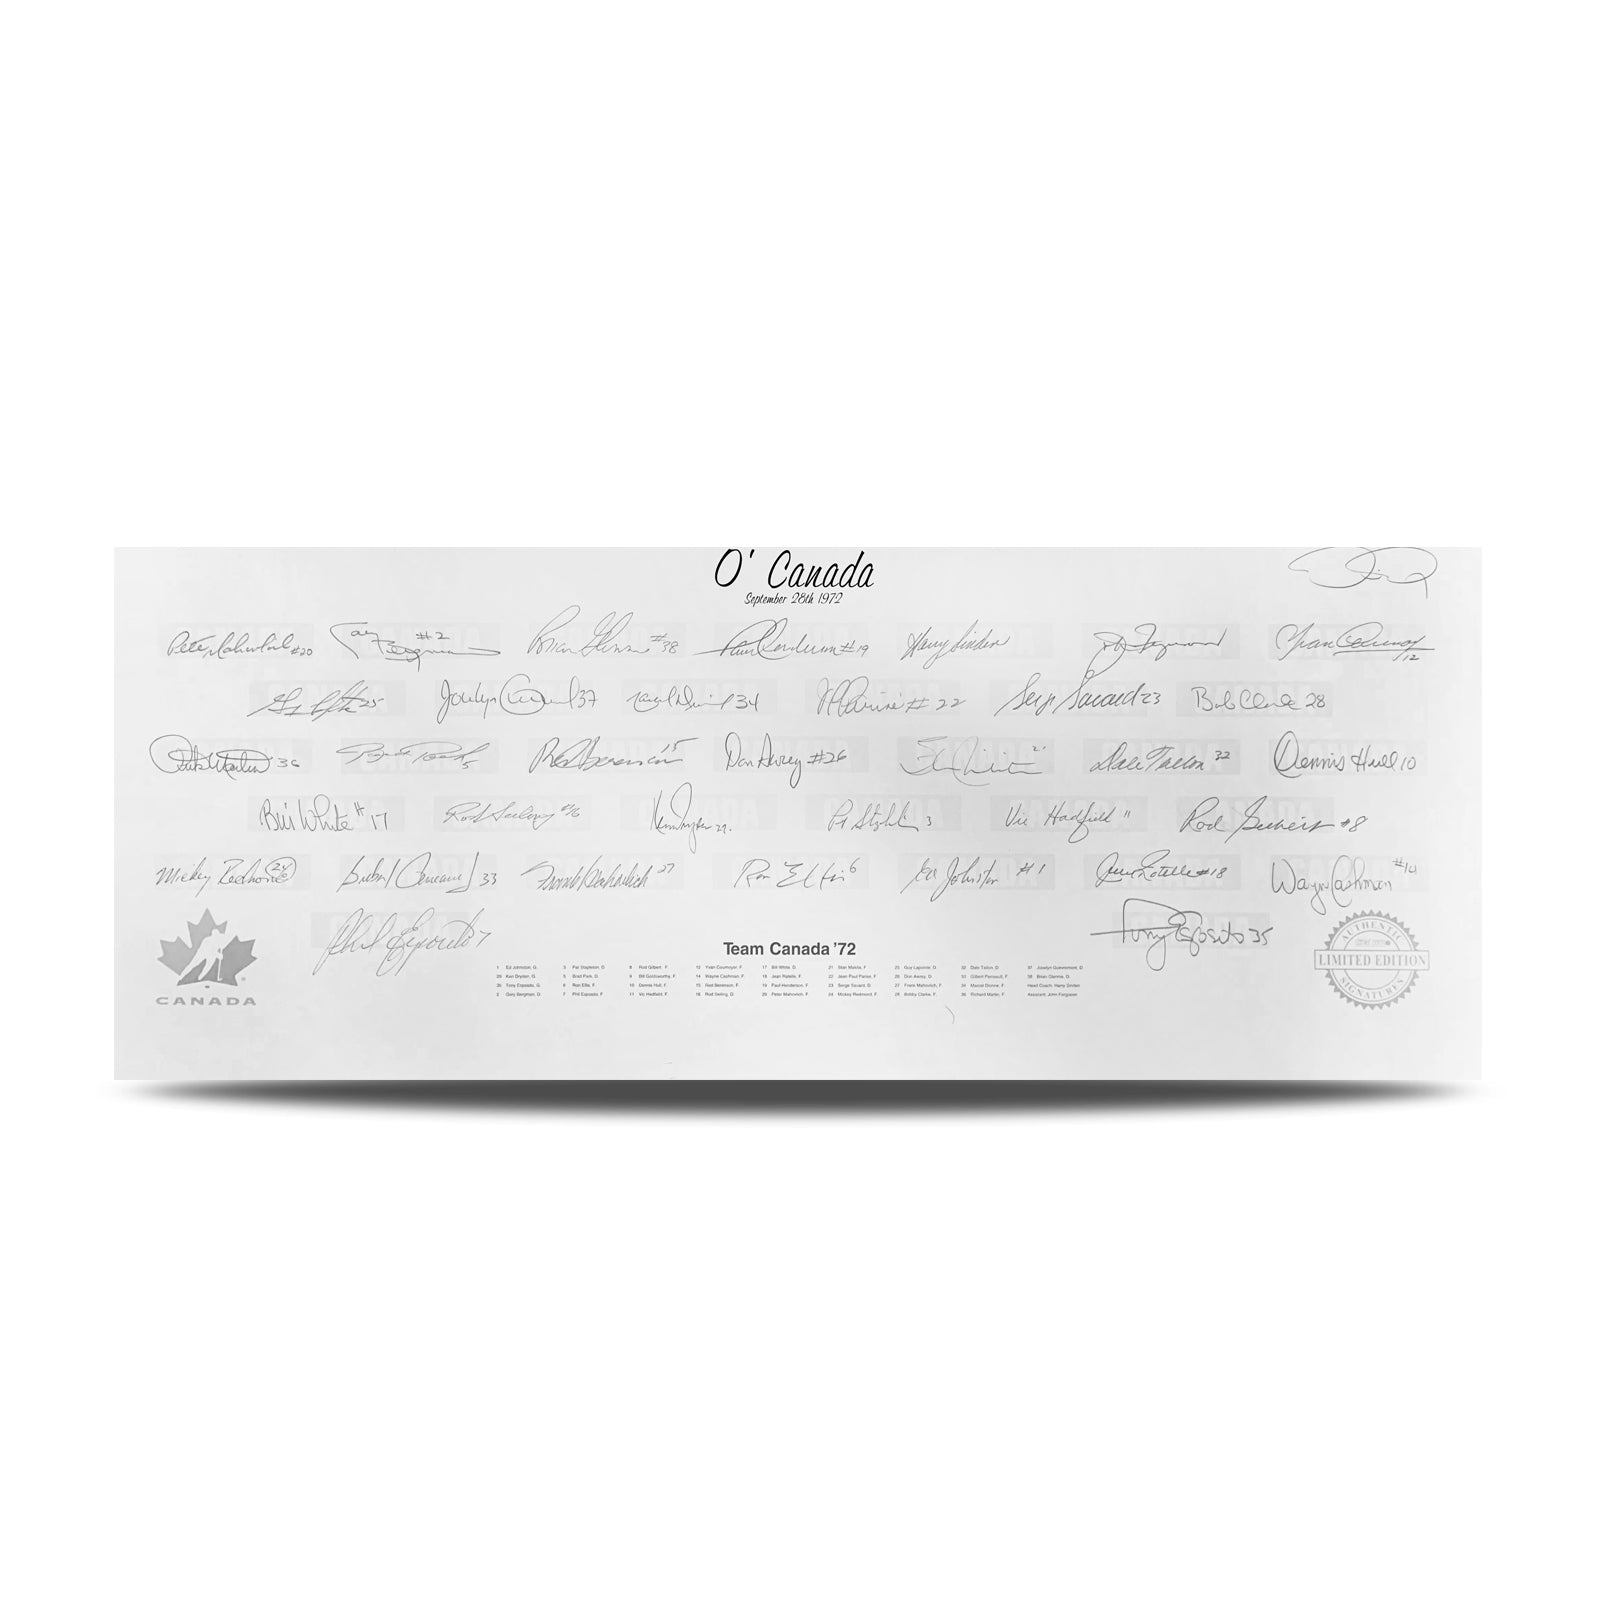 O' Canada
September 28th 1972
Pete Mahovlich #20 Gary Bergman #2 Brian Glennie #38 Paul Henderson #19 Harry Sinden J Ferguson Yvan Cournoyer 12
25 Jocelyn 37 Marcel Dionne 34 JP Parise # 22 Serge Savard 23 Bob Clarke 28
Rick Martin 36 Brad Park 5 Red Berenson 15 Don Awrey #26 21 Dale Tallon 32 Dennis Hull 10
Bill White # 17 Rod Seiling #16 Ken Dryden 29. Pat Stapleton 3 Vic Hadfield 11 Rod Gilbert #8
Mickey Redmond 24 Gilbert Perreault 33 Frank Mahovlich 27 Ron Ellis 6 Ed Johnston #1 Jean Ratelle #18 Wayne Cashman #14
Phil Esposito 7 Tony Esposito 35
CANADA
Team Canada '72
1 Ed Johnston, G. 3 Pat Stapleton, D. 8 Rod Gilbert, F. 12 Yvan Cournoyer, F. 17 Bill White, D. 21 Stan Mikita, F. 25 Guy Lapointe, D. 32 Dale Tallon, D. 37 Jocelyn Guevremont, D
29 Ken Dryden, G. 5 Brad Park, D. 9 Bill Goldsworthy, F. 14 Wayne Cashman, F. 18 Jean Ratelle, F. 22 Jean Paul Parise, F. 26 Don Awrey, D. 33 Gilbert Perreault, F. 38 Brian Glennie, D.
35 Tony Esposito, G. 6 Ron Ellis, F. 10 Dennis Hull, F. 15 Red Berenson, F. 19 Paul Henderson, F. 23 Serge Savard, D. 27 Frank Mahovlich, F. 34 Marcel Dionne, F. Head Coach, Harry Sinden
2 Gary Bergman, D. 7 Phil Esposito, F 11 Vic Hadfield, F. 16 Rod Seiling, D. 20 Peter Mahovlich, F. 24 Mickey Redmond, F. 28 Bobby Clarke, F. 36 Richard Martin, F. Assistant, John Ferguson
AUTHENTIC
LIMITED EDITION
SIGNATURES